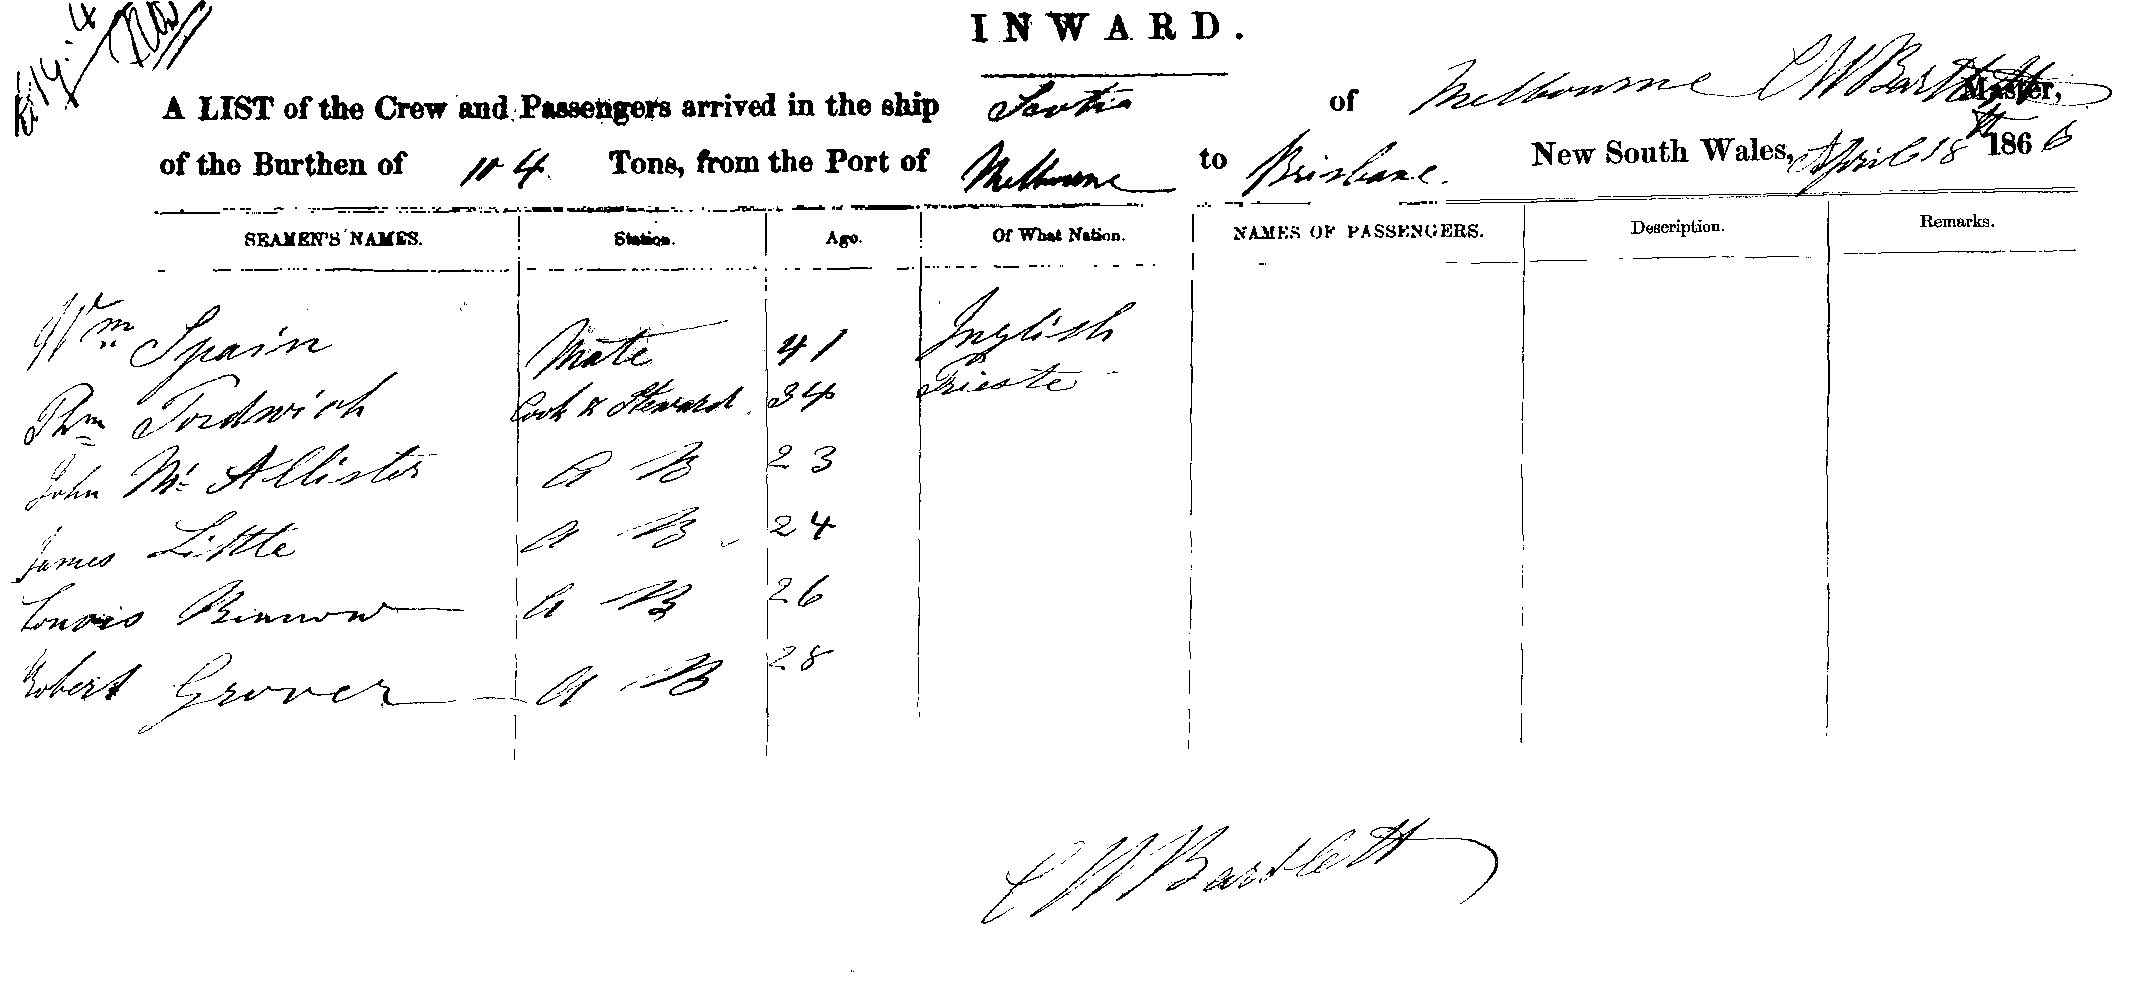 INWARD.
A LIST of the Crew and Passengers arrived in the ship Scotia of Melbourne C W Bartlett Master,
of the Burthen of 104 Tons, from the Port of Melbourne to Brisbane. New South Wales, April 18th 1866
SEAMEN'S NAMES. Station. Age. Of What Nation. NAMES OF PASSENGERS. Description. Remarks.
Wm Spain Mate 41 Inglish
Cook & Steward 34 Trieste
John Mc Allister A B 23
James Little A B 24
A B 26
Robert Grover A B 28
C W Bartlett